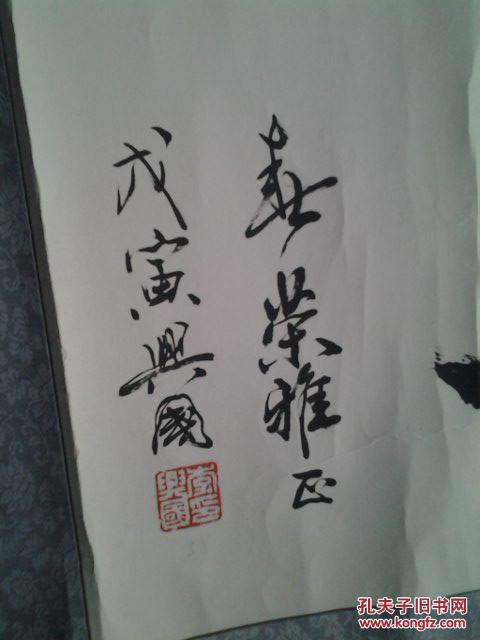 春荣雅正
戊寅興國
李興國印
孔夫子旧书网
www.kongfz.com